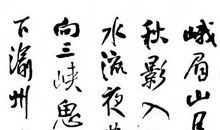 峨眉山月
秋影入
水流夜
向三峡思
下渝州